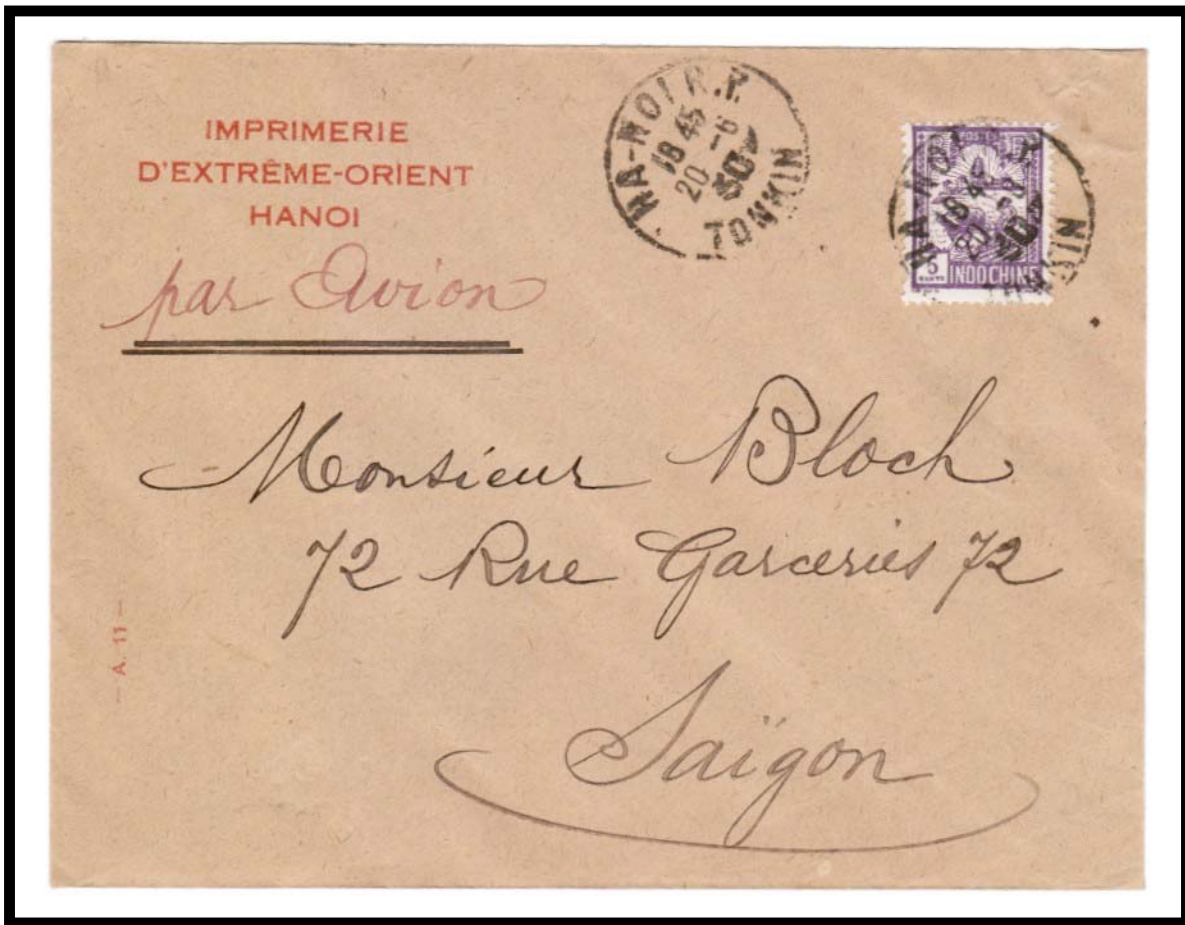 IMPRIMERIE
D'EXTRÊME-ORIENT
HANOI
par Avion
HA-NOI R.P.
18 45
20 -6
30
TONKIN
POSTES
5
INDOCHINE
Monsieur Bloch
72 Rue Garceries 72
Saïgon
— A. 11 —